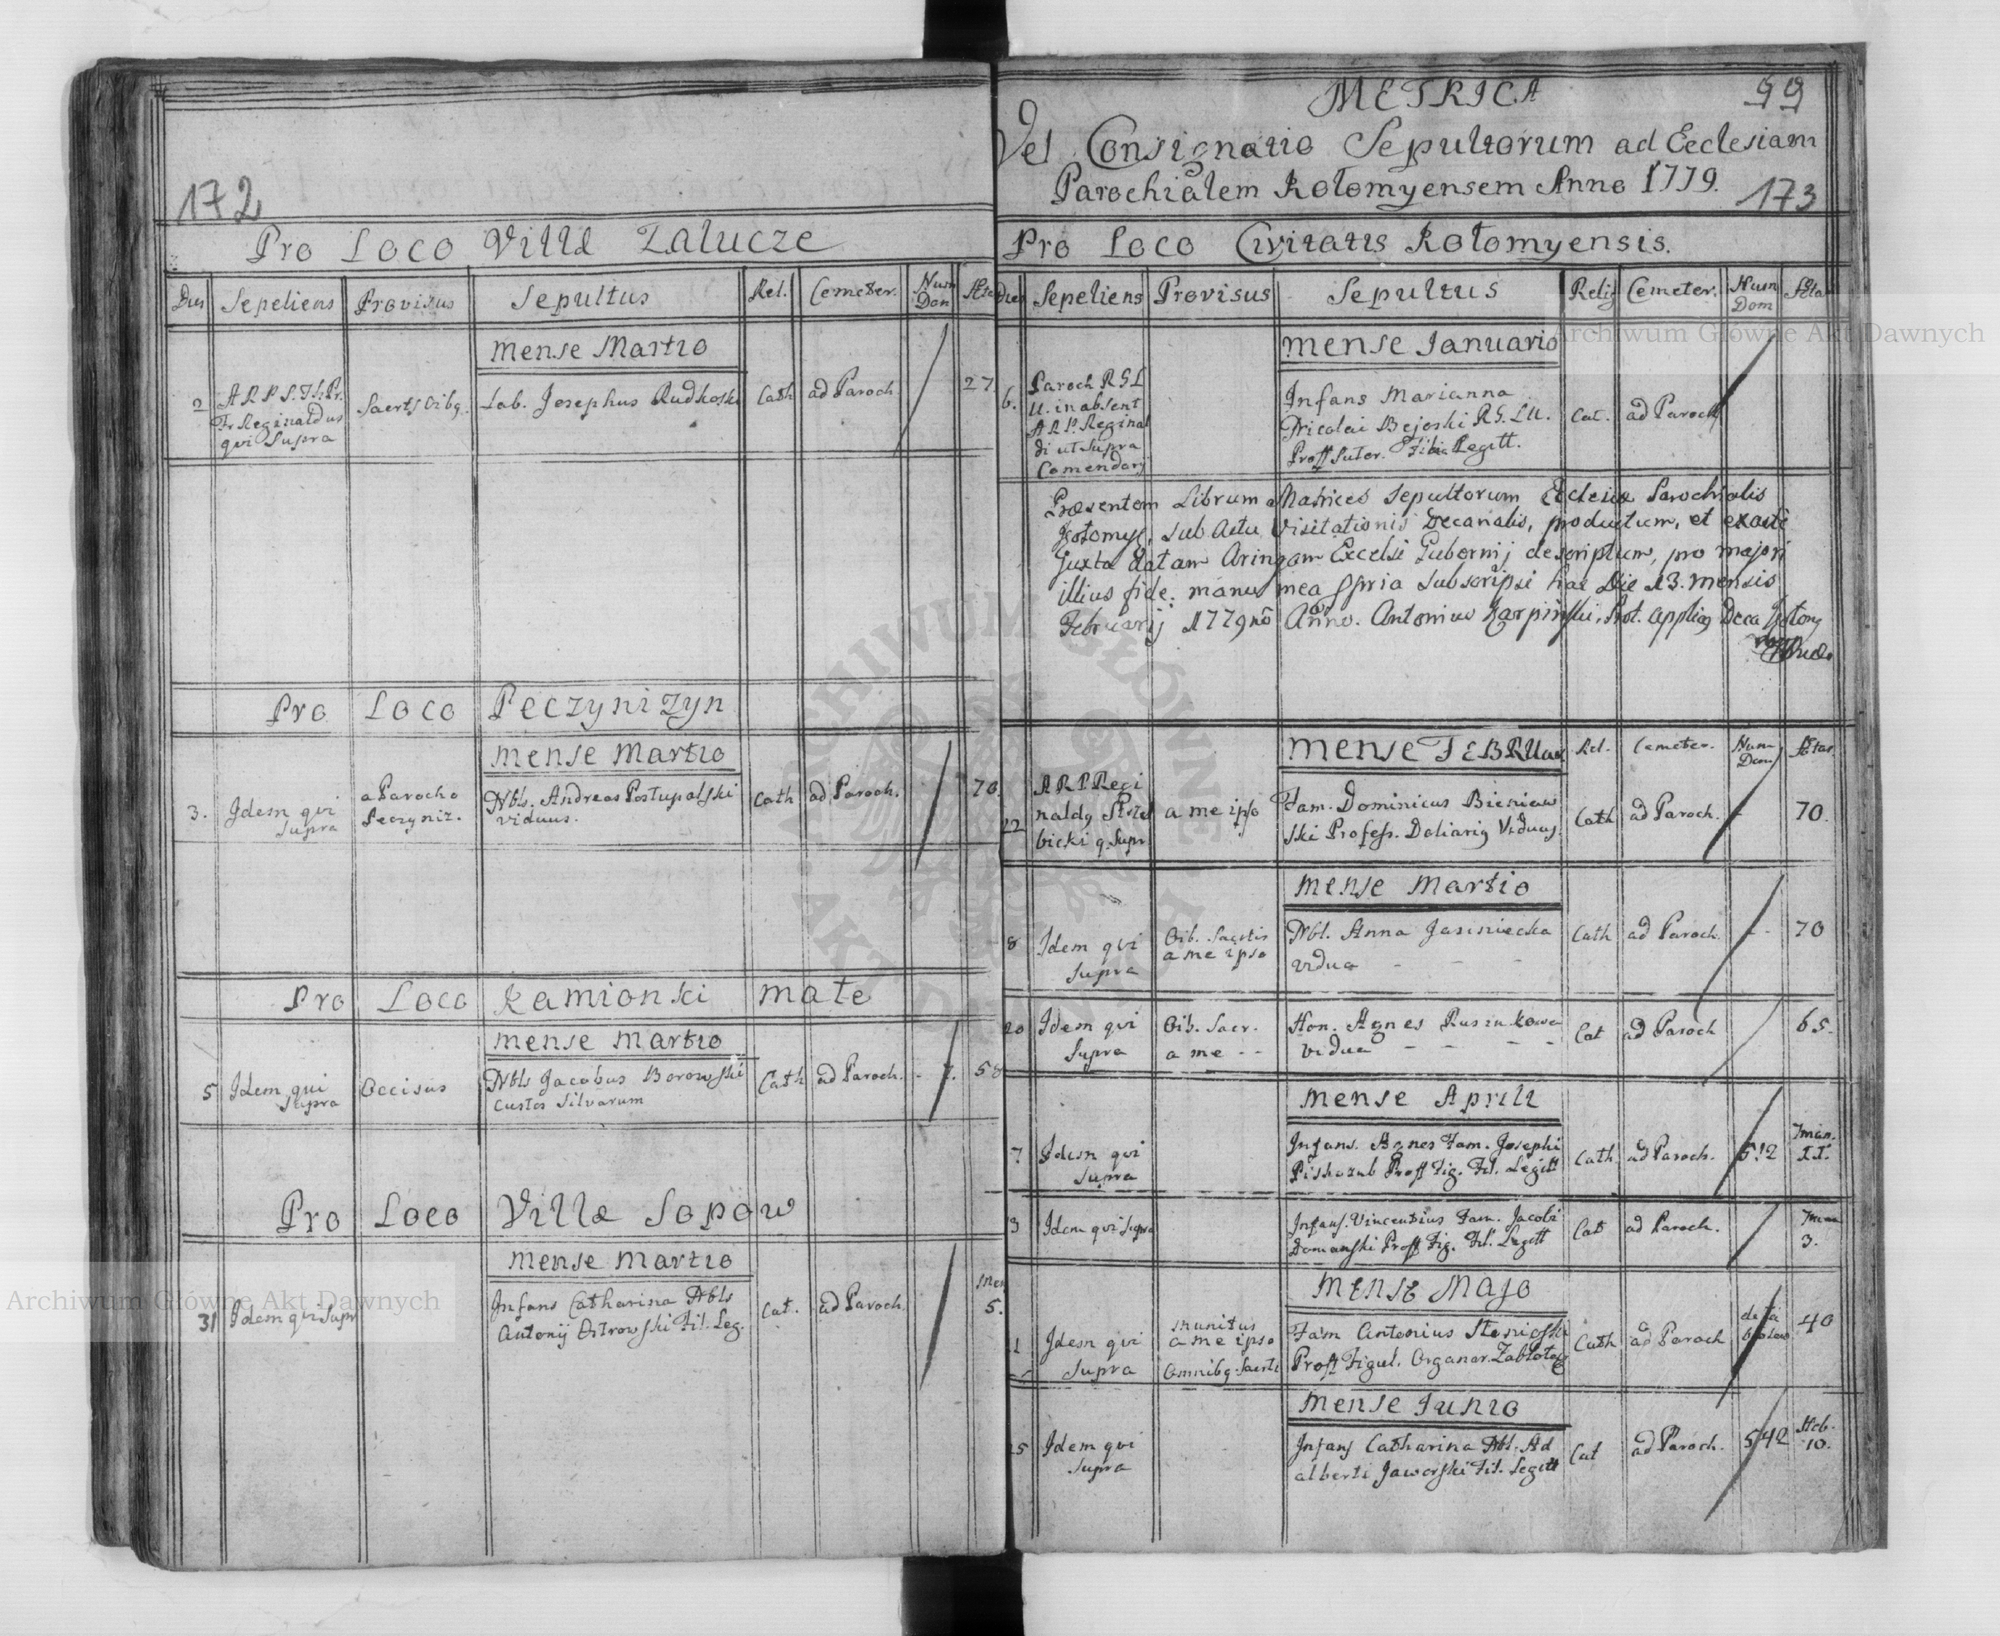 172
Pro Loco Villæ Zalucze
Dies Sepeliens Provisus Sepultus Rel. Cemeter. Num Dom Ætas
Mense Martio
2 A R P S. Th. Pr. Fr Reginaldus qui Supra
Sacrts Oibg.
Lab. Josephus Rudkoski
Cath
ad Paroch
27
Pro Loco Peczynizyn
Mense Martio
3. Jdem qui Supra
a Parocho Peczyniz.
Nbls. Andreas Postupalski
viduus.
Cath
ad Paroch.
70.
Pro Loco Kamionki małe
Mense Martio
5 Jdem qui Supra
Occisus
Nbls Jacobus Borowski
Custos Silvarum
Cath
ad Paroch.
58
Pro Loco Villæ Sopow
Mense Martio
31 Jdem qui Supr
Infans Catharina Nbls
Antonij Ostrowski Fil. Leg.
Cat.
ad Paroch
Men
5.
METRICA
99
Vel Consignatio Sepultorum ad Ecclesiam
Parochialem Kołomyensem Anno 1779.
173
Pro Loco Civitatis Kołomyensis.
Dies Sepeliens Provisus Sepultus Relig Cemeter. Num Dom Æta
Mense Januario
6. Paroch R G L
U. in absent
A R P. Reginal
di ut Supra
Comendarj
Infans Marianna
Nicolai Bejoski R G. L U.
Proff Sutor. Filia Legitt.
Cat.
ad Paroch
Præsentem Librum Matrices Sepultorum Ecclesiæ Parochialis
Kołomye, sub Actu Visitationis Decanalis, productum, et exacte
Juxta datam Aringam Excelsi Gubernij descriptum, pro majori
illius fide; manu mea ppria subscripsi hac Die 13. mensis
Februarij 1779no Anno. Antonius Karpinski, Prot. Applicq Deca Kołomy
Mense FEBRUar
Rel.
Cemeter.
Num Dom
Ætas
22 A R P Regi
naldq
bicki q. Supr
a me ipso
Fam. Dominicus Bieniaw
ski Profess. Doliariq Viduq
Cath
ad Paroch.
70.
Mense Martio
8 Jdem qui Supra
Oib. Sacrtis
a me ipso
Nbl. Anna Jasiniecka
vidua
Cath
ad Paroch.
70
20 Jdem qui Supra
Oib. Sacr.
a me
Hon. Agnes Rusznkowa
vidua
Cat
ad Paroch
65.
Mense Aprili
7 Jdem qui Supra
Infans. Agnes Fam. Josephi
Piskozub Proff Fig. Fil. Legitt
Cath
ad Paroch.
512
II.
3 Jdem qui Supra
Infans. Vincentius Fam. Jacobi
Domanski Proff Fig. Fil. Legitt
Cat
ad Paroch.
3.
Mense Majo
Jdem qui Supra
munitus
a me ipso
Omnibq. Sacrti
Fam Antonius
Proff Figul. Organar.
Cath
ad Paroch
40
Mense Junio
5 Jdem qui Supra
Infans Catharina Nbl. Ad
alberti Jaworski Fil. Legitt
Cat
ad Paroch.
542
Heb.
10.
Archiwum Główne Akt Dawnych
Archiwum Główne Akt Dawnych
ARCHIWUM GŁÓWNE AKT DAWNYCH